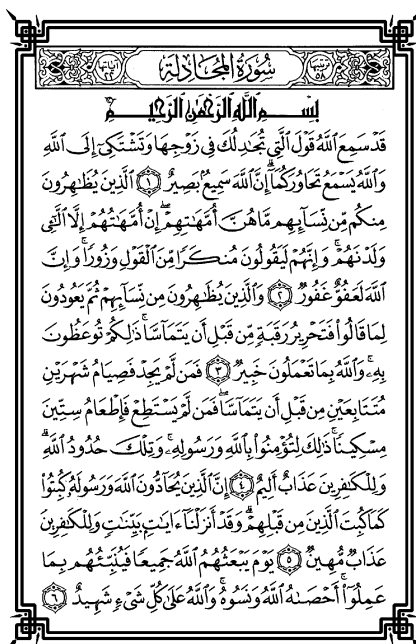 ترتيبها ٥٨ سُورَةُ الْمُجَادِلَةِ آياتها ٢٢
بِسْمِ اللَّهِ الرَّحْمَٰنِ الرَّحِيمِ
قَدْ سَمِعَ اللَّهُ قَوْلَ الَّتِي تُجَادِلُكَ فِي زَوْجِهَا وَتَشْتَكِي إِلَى اللَّهِ
وَاللَّهُ يَسْمَعُ تَحَاوُرَكُمَا ۚ إِنَّ اللَّهَ سَمِيعٌ بَصِيرٌ ۝١ الَّذِينَ يُظَاهِرُونَ
مِنكُم مِّن نِّسَائِهِم مَّا هُنَّ أُمَّهَاتِهِمْ ۖ إِنْ أُمَّهَاتُهُمْ إِلَّا اللَّائِي
وَلَدْنَهُمْ ۚ وَإِنَّهُمْ لَيَقُولُونَ مُنكَرًا مِّنَ الْقَوْلِ وَزُورًا ۚ وَإِنَّ
اللَّهَ لَعَفُوٌّ غَفُورٌ ۝٢ وَالَّذِينَ يُظَاهِرُونَ مِن نِّسَائِهِمْ ثُمَّ يَعُودُونَ
لِمَا قَالُوا فَتَحْرِيرُ رَقَبَةٍ مِّن قَبْلِ أَن يَتَمَاسَّا ۚ ذَٰلِكُمْ تُوعَظُونَ
بِهِ ۚ وَاللَّهُ بِمَا تَعْمَلُونَ خَبِيرٌ ۝٣ فَمَن لَّمْ يَجِدْ فَصِيَامُ شَهْرَيْنِ
مُتَتَابِعَيْنِ مِن قَبْلِ أَن يَتَمَاسَّا ۖ فَمَن لَّمْ يَسْتَطِعْ فَإِطْعَامُ سِتِّينَ
مِسْكِينًا ۚ ذَٰلِكَ لِتُؤْمِنُوا بِاللَّهِ وَرَسُولِهِ ۚ وَتِلْكَ حُدُودُ اللَّهِ ۗ
وَلِلْكَافِرِينَ عَذَابٌ أَلِيمٌ ۝٤ إِنَّ الَّذِينَ يُحَادُّونَ اللَّهَ وَرَسُولَهُ كُبِتُوا
كَمَا كُبِتَ الَّذِينَ مِن قَبْلِهِمْ ۚ وَقَدْ أَنزَلْنَا آيَاتٍ بَيِّنَاتٍ ۚ وَلِلْكَافِرِينَ
عَذَابٌ مُّهِينٌ ۝٥ يَوْمَ يَبْعَثُهُمُ اللَّهُ جَمِيعًا فَيُنَبِّئُهُم بِمَا
عَمِلُوا ۚ أَحْصَاهُ اللَّهُ وَنَسُوهُ ۚ وَاللَّهُ عَلَىٰ كُلِّ شَيْءٍ شَهِيدٌ ۝٦